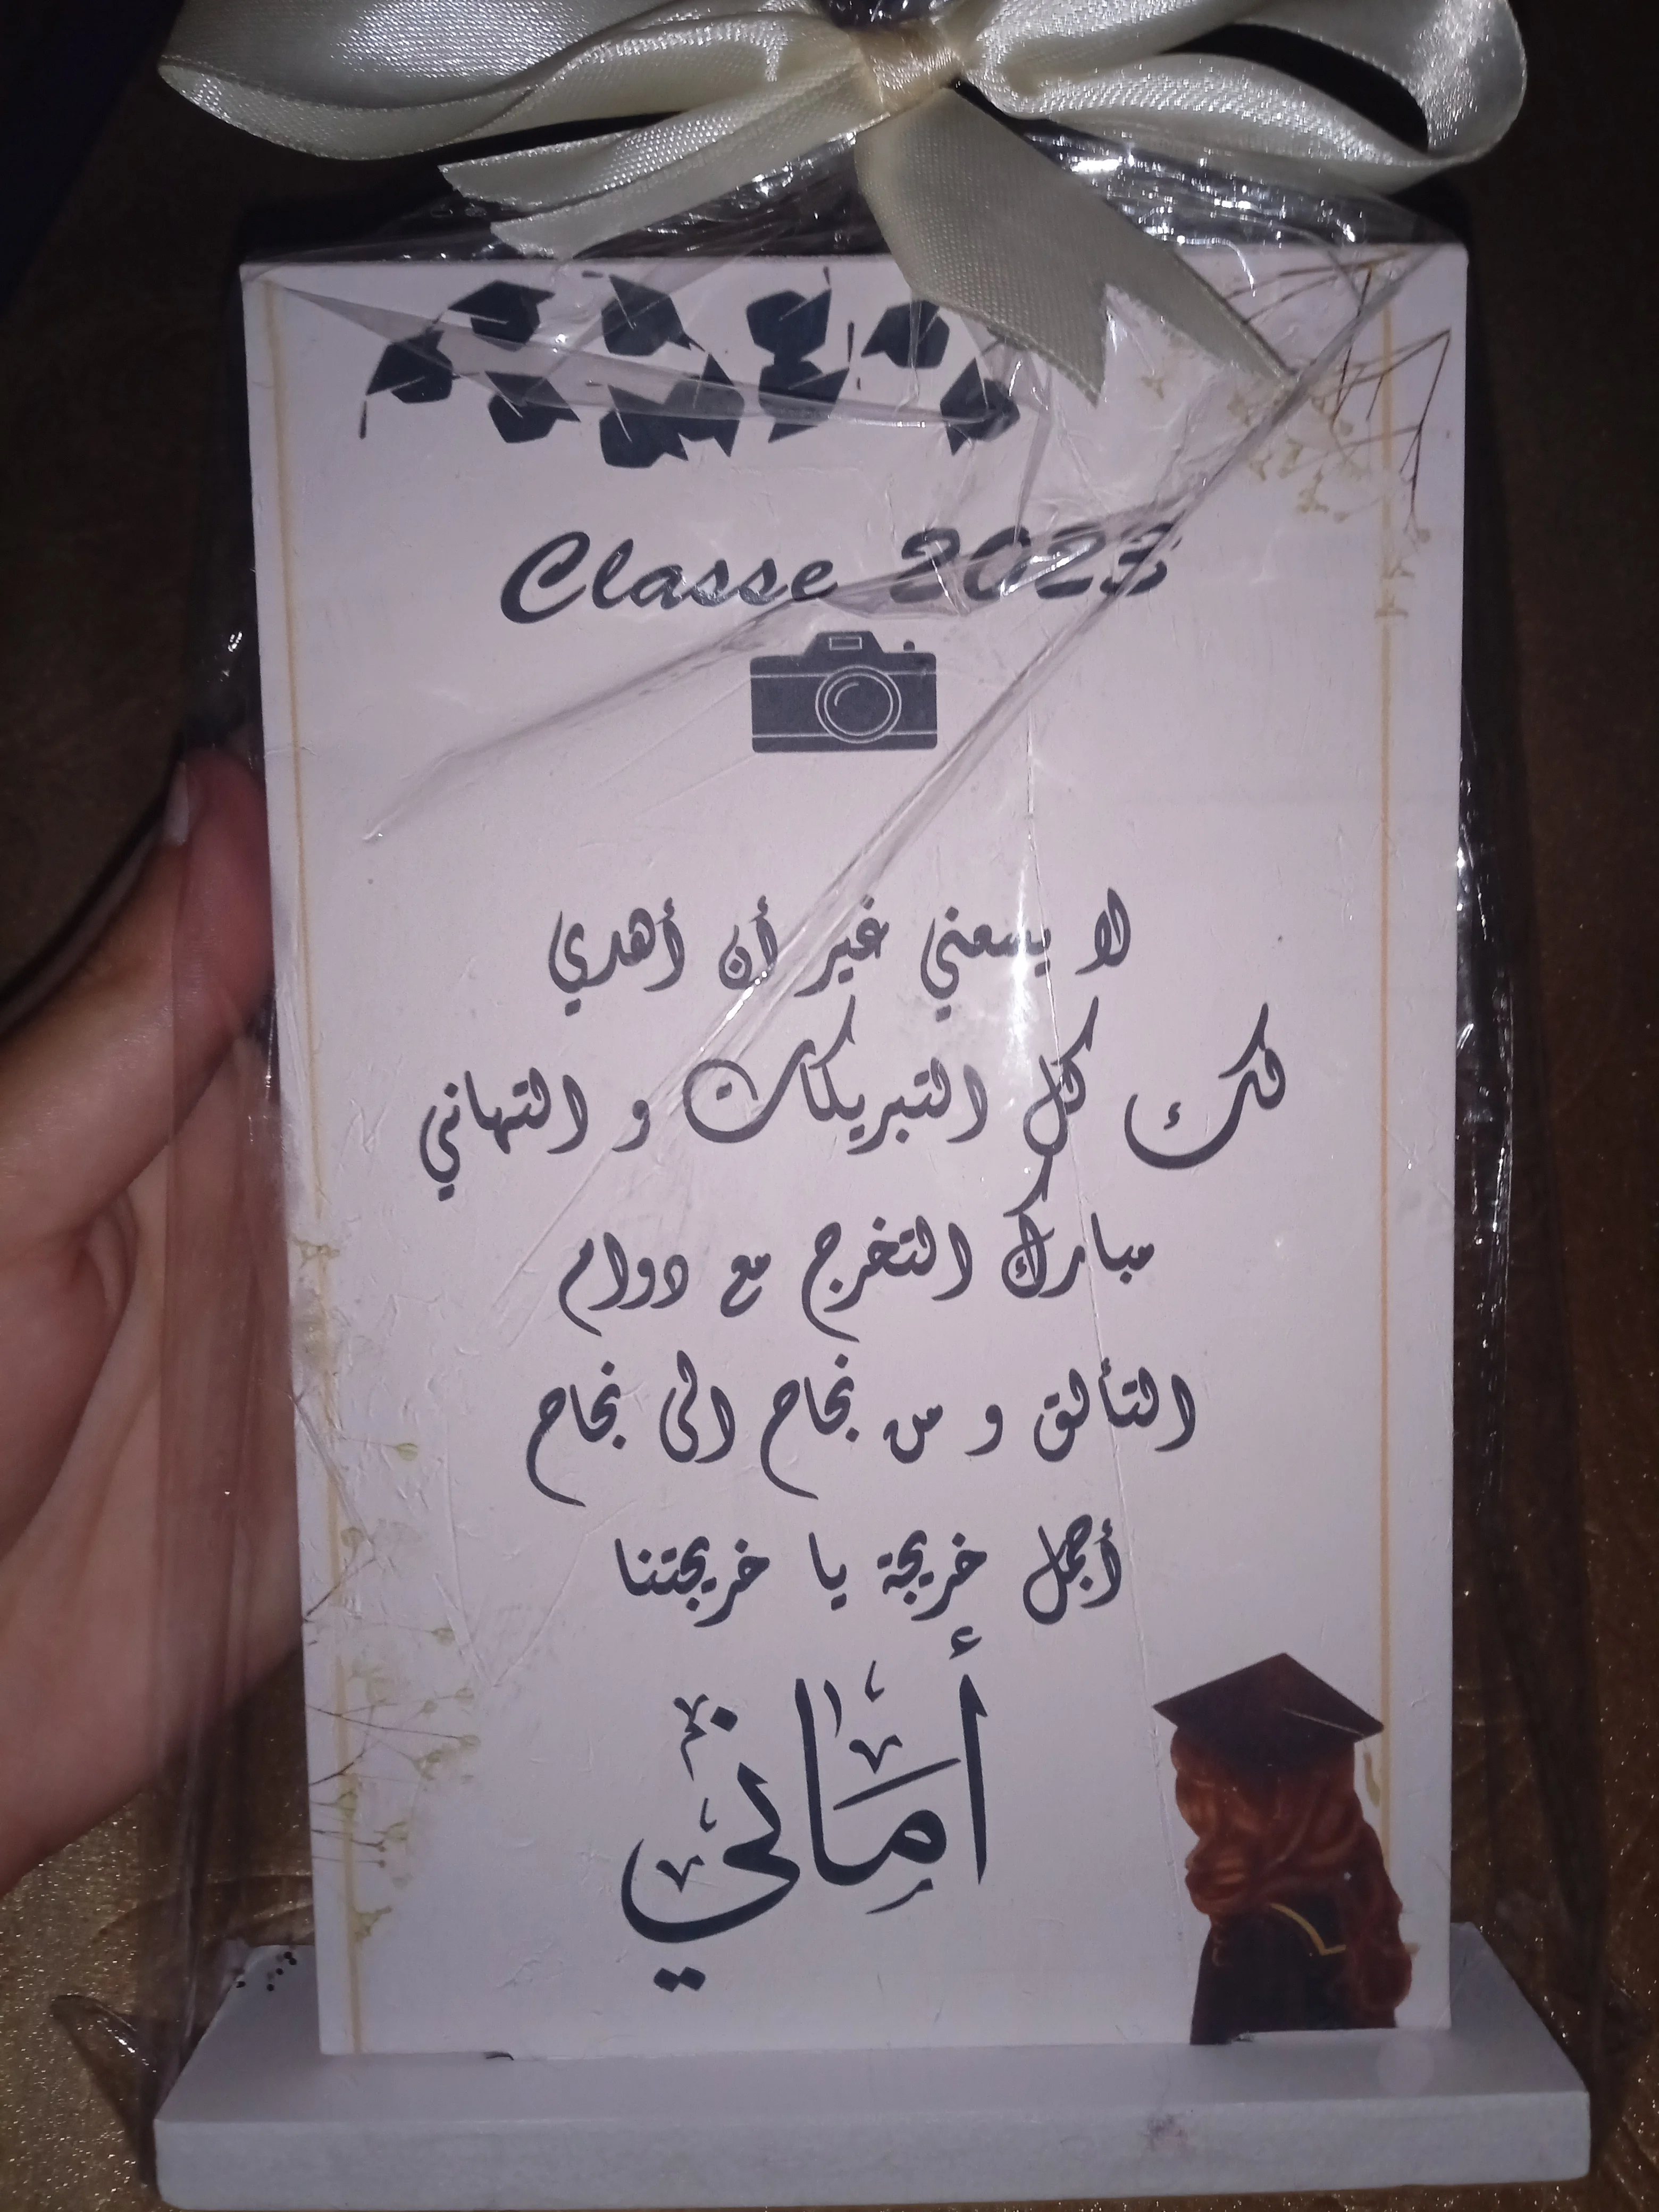 Classe 2023
لا يسعني غير أن أهدي
لك كل التبريكات و التهاني
مبارك التخرج مع دوام
التألق و من نجاح الى نجاح
أجمل خريجة يا خريجتنا
أماني